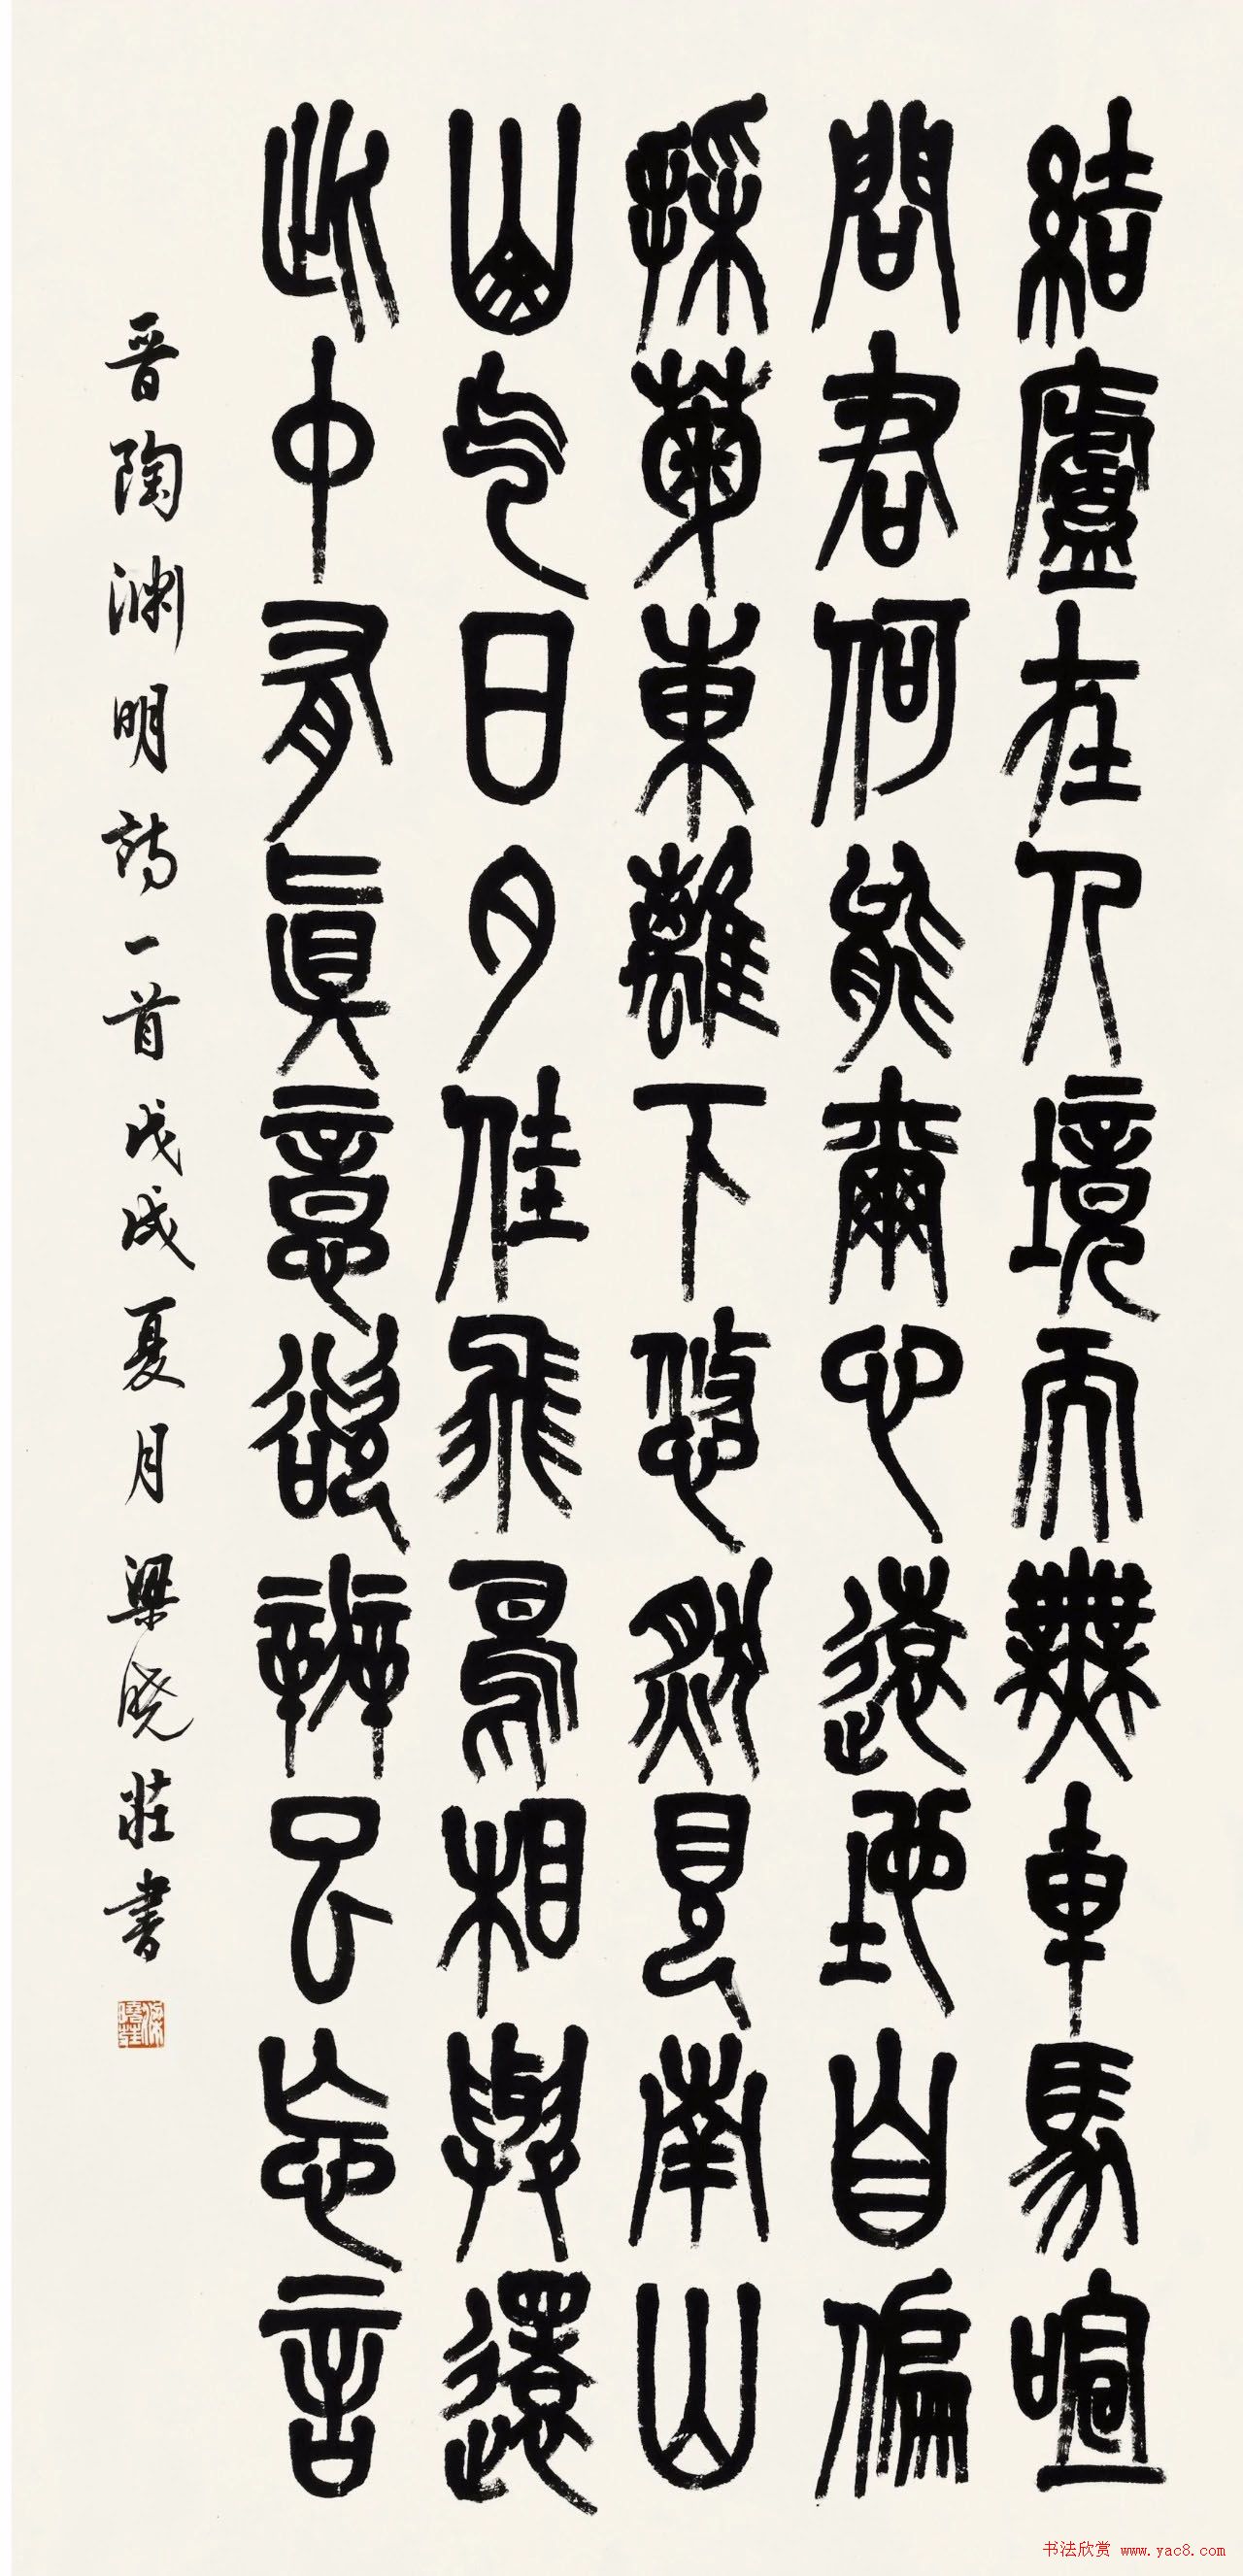 結廬在人境而無車馬喧
問君何能爾心遠地自偏
採菊東籬下悠然見南山
山气日夕佳飛鳥相與還
此中有真意欲辨已忘言
晋陶渊明诗一首戊戌夏月梁晓莊书
书法欣赏 www.yac8.com